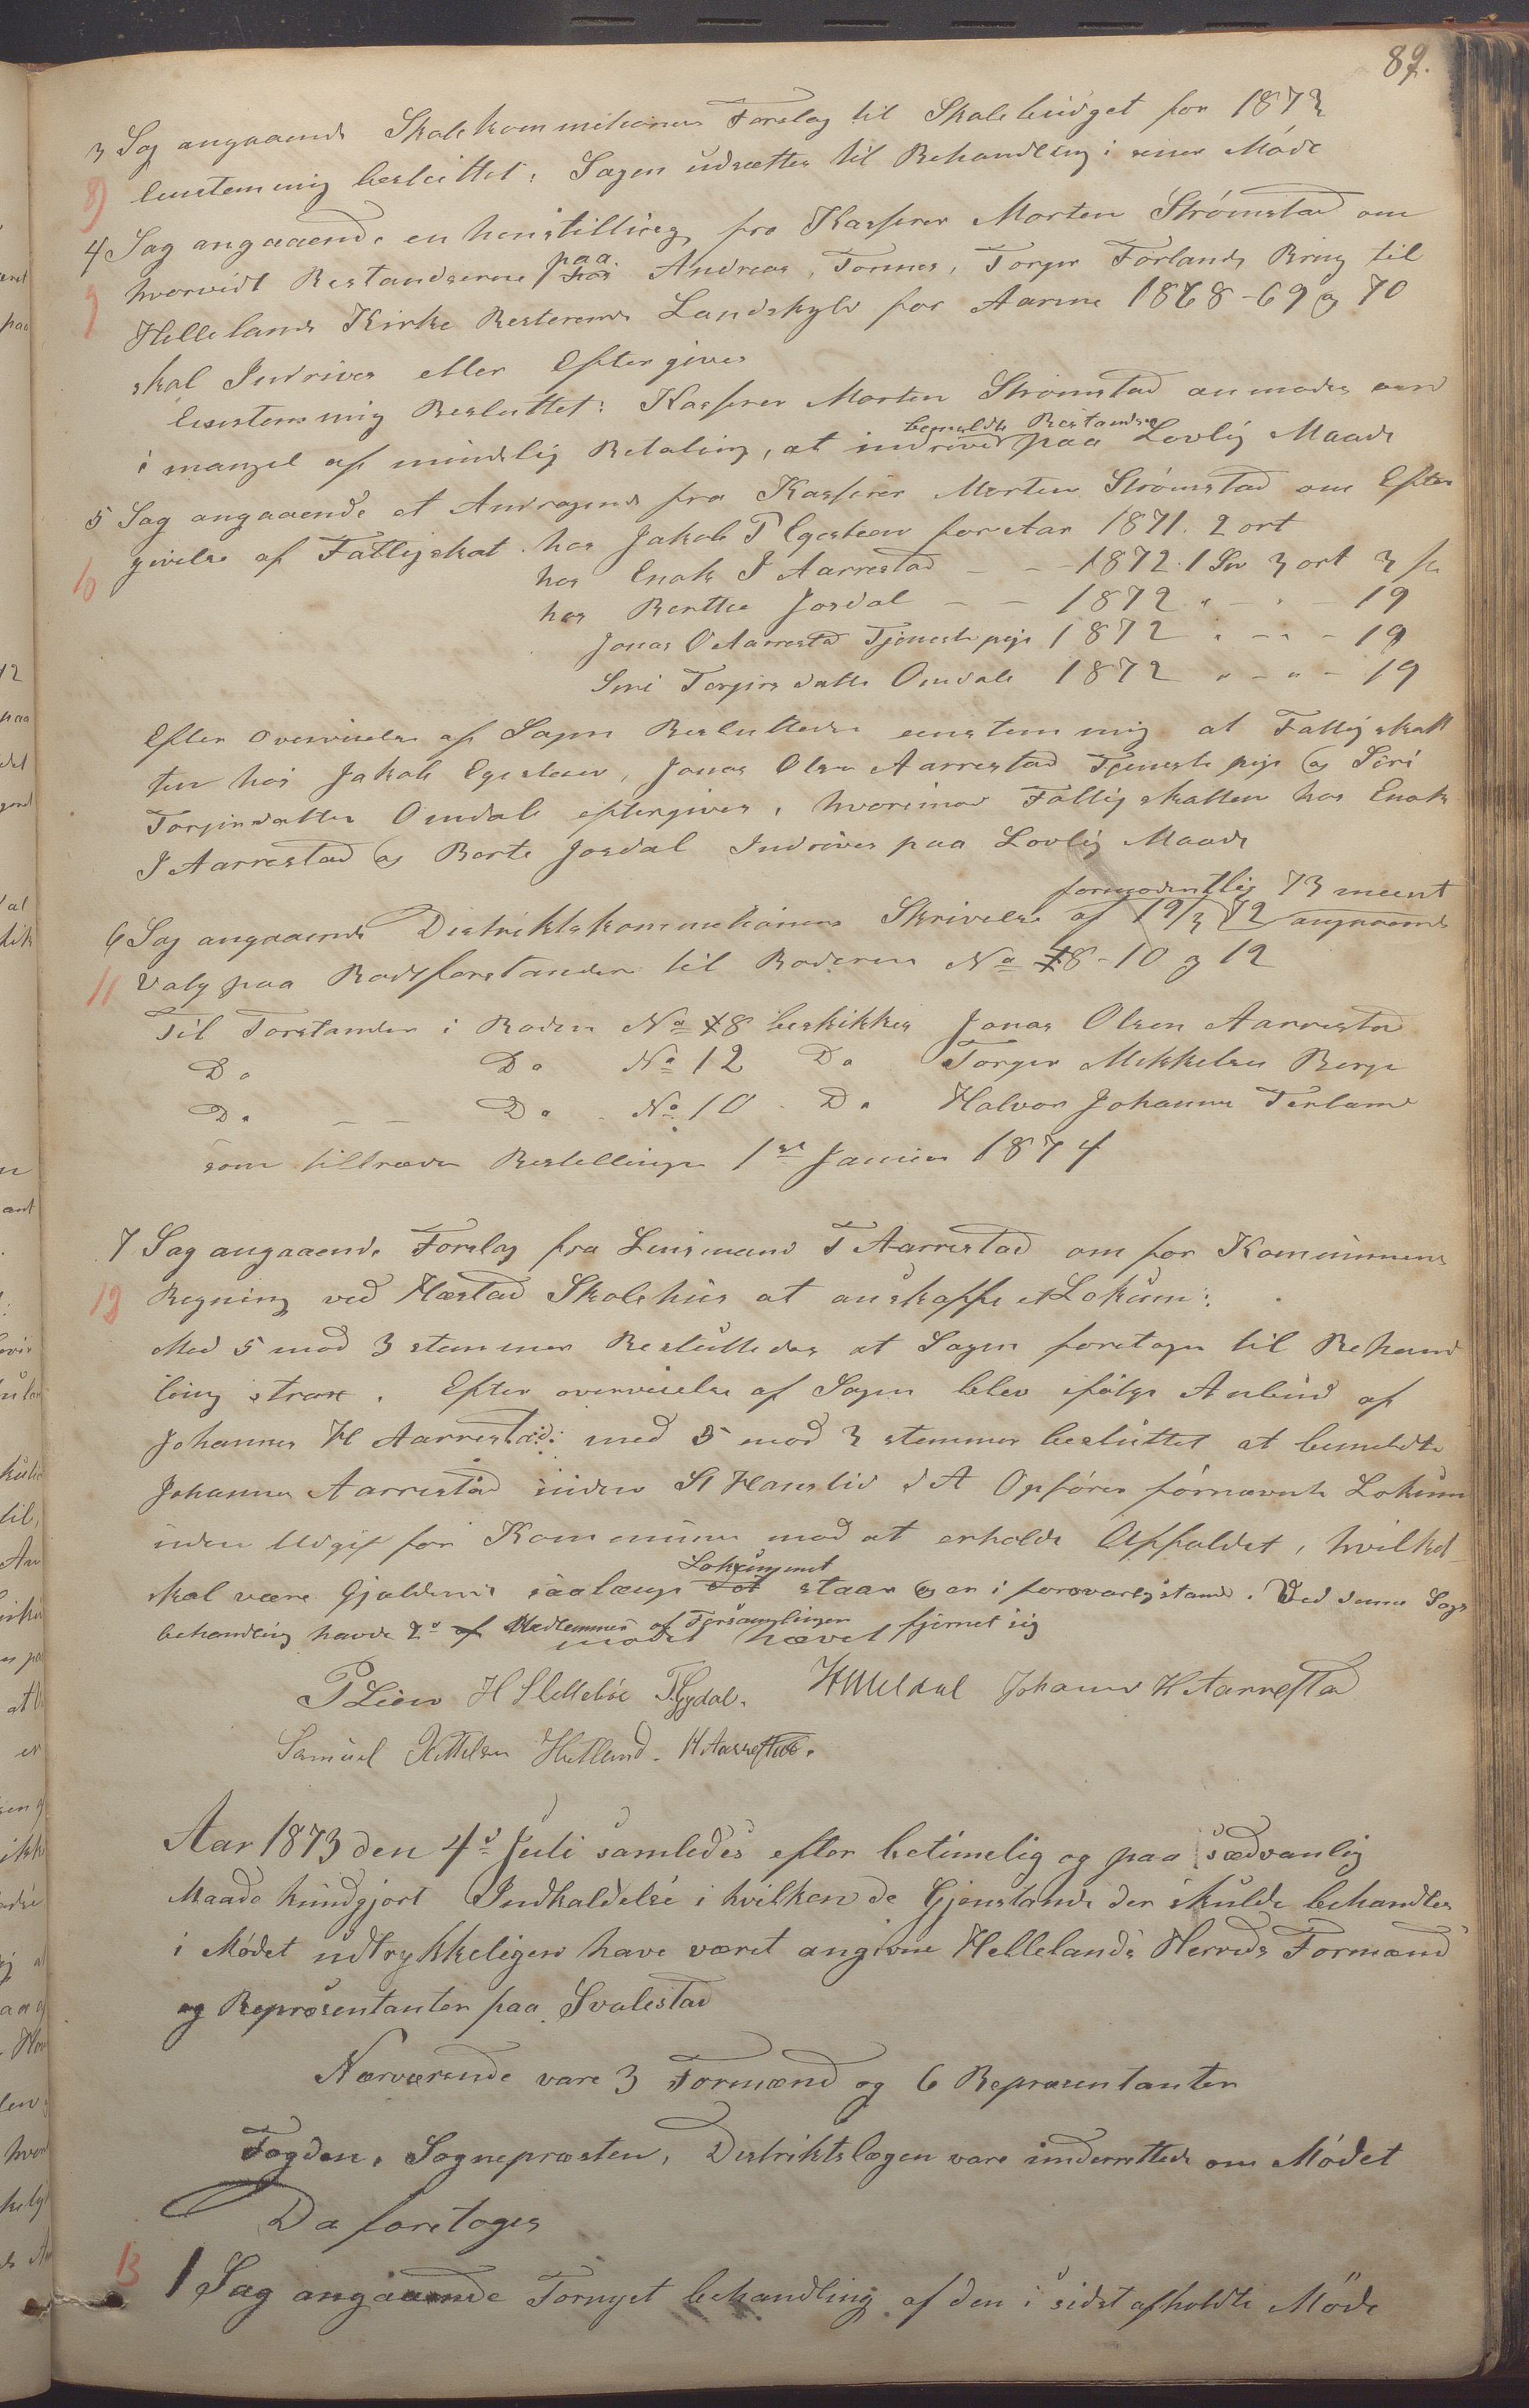 89.
3 Sag angaaende Skolekommitionens Forslag til Skolebudget for 1873
8) Eenstemmig besluttet: Sagen udsættes til Behandling i senere Møde
4 Sag angaaende en henstilling fra Kasserer Morten Strømstad om
9 hvorvidt Restandserne paa Andreas, Tonnes, Torger Førlands Brug til
Hellelands Kirke Resterende Landskyld for Aarene 1868-69 og 70
skal Indrives eller Eftergives
Eenstemmig Besluttet: Kasserer Morten Strømstad anmodes om
bemeldte Restandse
i mangel af mindelig Betaling, at indrive paa Lovlig Maade
5 Sag angaaende et Andragende fra Kasserer Morten Strømstad om Efter
10 givelse af Fattigskat. hos Jakob T Egesteen for Aar 1871. 2 ort
hos Enok J Aarrestad - - 1872. 1 Sp 3 ort 3 s
hos Berthe Josdal - - 1872 " - " - 19
Jonas O Aarrestad Tjenestepige 1872 " - " - 19
Siri Torgersdatter Omdal 1872 " - " - 19
Efter overveielse af Sagen Besluttedes eenstemmig at Fattigskat
ten hos Jakob Egesteen, Jonas Olsen Aarrestad Tjenestepige og Siri
Torgersdatter Omdal eftergives, hvorimod Fattigskatten hos Enok
J Aarrestad og Berte Josdal Indrives paa Lovlig Maade
formodentlig 73 meent
6 Sag angaaende Distriktskommitionens Skrivelse af 19/3 72 angaaende
11 Valg paa Rodeforstandere til Roderne No 8-10 og 12
Til Forstander i Roden No 8 beskikkes Jonas Olsen Aarrestad
Do Do No 12 Do Torger Mikkelsen Berge
Do - - Do - No 10 - Do Halvor Johannes Terland
som tiltræder Bestillingen 1st Januar 1874
7 Sag angaaende Forslag fra Lensmand T Aarrestad om for Kommunens
12 Regning ved Hæstad Skolehus at anskaffe et Lokum:
Med 5 mod 3 stemmer Besluttedes at Sagen foretages til Behand
ling strax. Efter overveielse af Sagen blev ifølge Anbud af
Johannes H Aarrestad: med 5 mod 3 stemmer besluttet at bemeldte
Johannes Aarrestad inden St Hanstid d A Opfører førnævnte Lokum
uden Udgift for Kommunen mod at erholde Affaldet, hvilket
Lokummet
skal være Gjeldende saalænge staar og er i forsvarlig stand. Ved denne Sags
behandling havde 2de Medlemmer af Forsamlingen fjernet sig
mødet hævet
P Lien H Slettebøe T. Gydal. H Meldal Johannes H Aarrestad
Samuel Kittelsen Hetland. H Aarrestad.
Aar 1873 den 4d Juli samledes efter betimelig og paa sædvanlig
Maade kundgjort Indkaldelse i hvilken de Gjenstande der skulde behandles
i Mødet udtrykkeligen have været angivne Hellelands Herreds Formænd
og Repræsentanter paa Svalestad
Nærværende vare 3 Formænd og 6 Repræsentanter
Fogden, Sognepræsten, Distriktslægen vare underrettede om Mødet
Da foretoges
13 1 Sag angaaende Fornyet behandling af den i sidst afholdte Møde